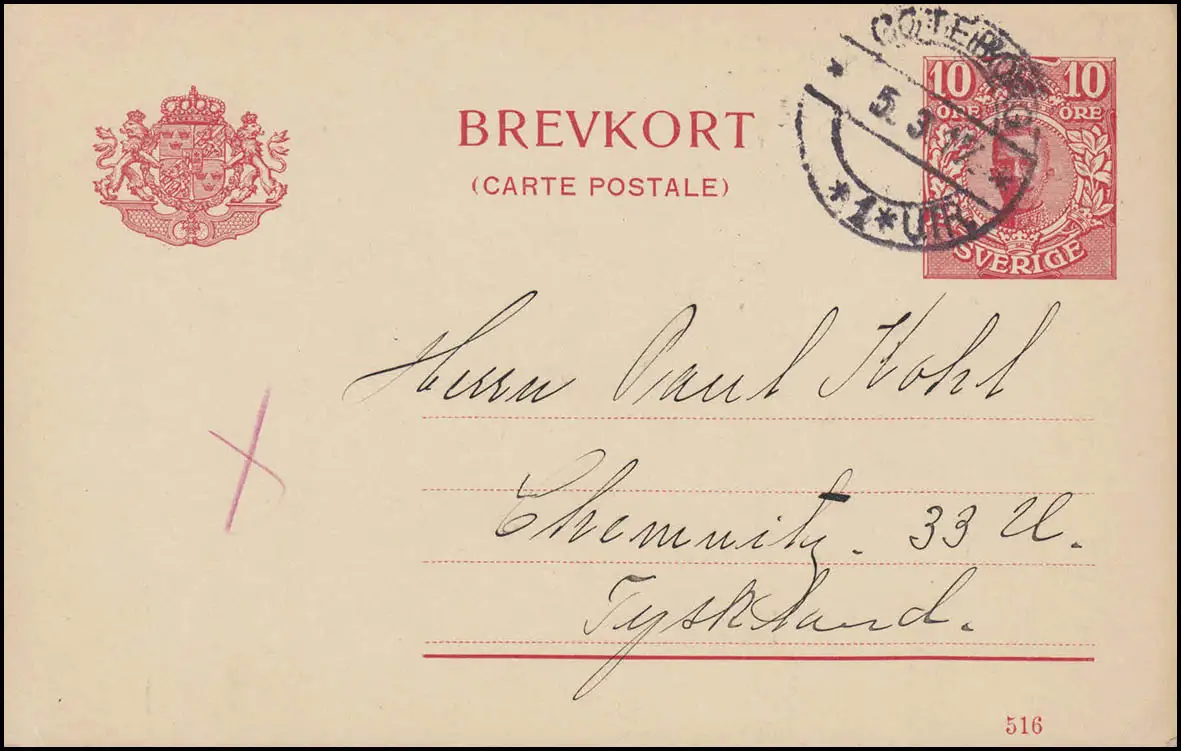 BREVKORT
(CARTE POSTALE)
GÖTEBORG
5.3.17.
*1*UTR.
10 10
ÖRE ÖRE
SVERIGE
Herrn Paul Kohl
Chemnitz. 33 U.
Tyskland.
516